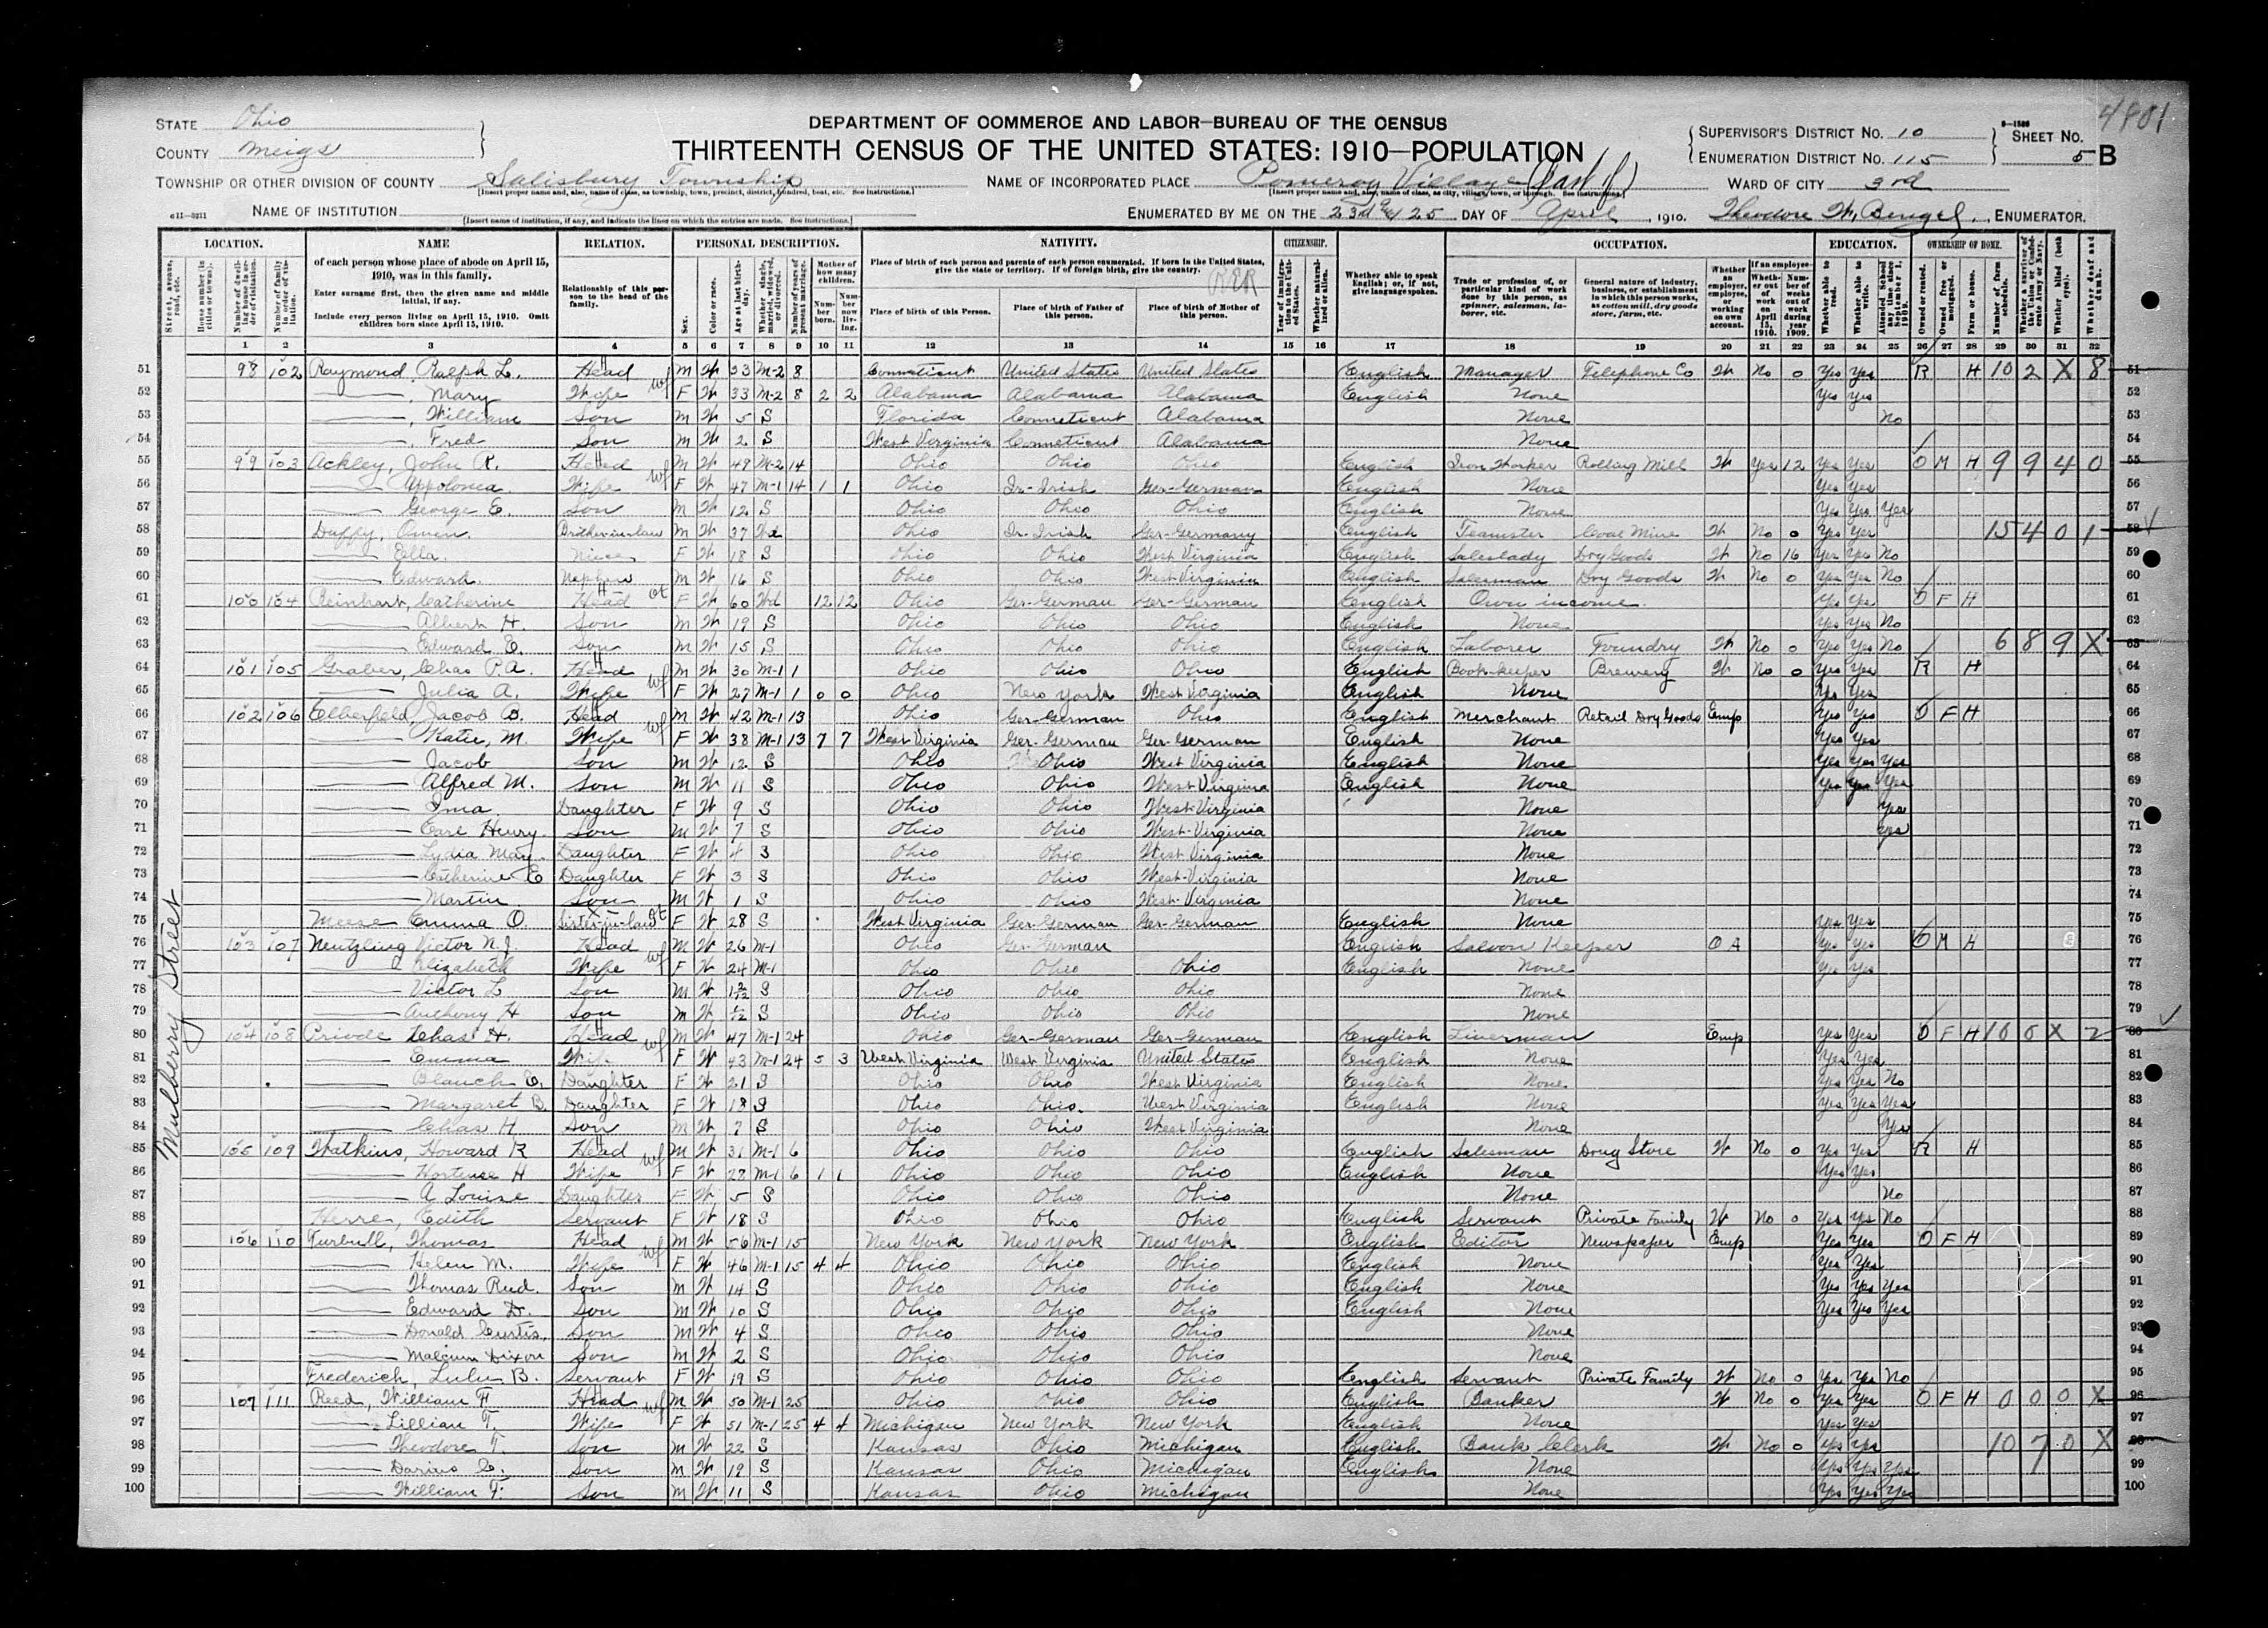 4801
DEPARTMENT OF COMMERCE AND LABOR—BUREAU OF THE CENSUS
THIRTEENTH CENSUS OF THE UNITED STATES: 1910—POPULATION
STATE Ohio
COUNTY Meigs
SUPERVISOR'S DISTRICT No. 10
ENUMERATION DISTRICT No. 115
SHEET No. 5 B
TOWNSHIP OR OTHER DIVISION OF COUNTY Salisbury Township
NAME OF INCORPORATED PLACE Pomeroy Village (Part of)
WARD OF CITY 3rd
NAME OF INSTITUTION
ENUMERATED BY ME ON THE 23rd & 25 DAY OF April, 1910. Theodore W. Bengel, ENUMERATOR.
LOCATION. NAME RELATION. PERSONAL DESCRIPTION. NATIVITY. CITIZENSHIP. OCCUPATION. EDUCATION. OWNERSHIP OF HOME.
of each person whose place of abode on April 15, 1910, was in this family.
Enter surname first, then the given name and middle initial, if any.
Include every person living on April 15, 1910. Omit children born since April 15, 1910.
Relationship of this person to the head of the family.
Place of birth of each person and parents of each person enumerated. If born in the United States, give the state or territory. If of foreign birth, give the country.
Place of birth of this Person. Place of birth of Father of this person. Place of birth of Mother of this person.
Whether able to speak English; or, if not, give language spoken.
Mulberry Street
51 98 102 Raymond, Ralph L. Head M W 33 M-2 8 Conneticut United States United States English Manager Telephone Co W No 0 Yes Yes R H 10 2 X 8 51
52 Mary Wife F W 33 M-2 8 2 2 Alabama Alabama Alabama English None Yes Yes 52
53 William Son M W 5 S Florida Conneticut Alabama None No 53
54 Fred Son M W 2 S West Virginia Conneticut Alabama None 54
55 99 103 Ackley, John R. Head M W 49 M-2 14 Ohio Ohio Ohio English Iron Worker Rolling Mill W Yes 12 Yes Yes O M H 9 9 4 0 55
56 Appolonia Wife F W 47 M-1 14 1 1 Ohio Ir-Irish Ger-German English None Yes Yes 56
57 George E. Son M W 12 S Ohio Ohio Ohio English None Yes Yes Yes 57
58 Duffy, Owen Brother-in-law M W 37 Wd Ohio Ir-Irish Ger-Germany English Teamster Coal Mine W No 0 Yes Yes 15 4 0 1 58
59 Ella Niece F W 18 S Ohio Ohio West Virginia English Saleslady Dry Goods W No 16 Yes Yes No 59
60 Edward Nephew M W 16 S Ohio Ohio West Virginia English Salesman Dry Goods W No 0 Yes Yes No 60
61 100 104 Reinhart, Catherine Head F W 60 Wd 12 12 Ohio Ger-German Ger-German English Own income Yes Yes O F H 61
62 Albert H. Son M W 19 S Ohio Ohio Ohio English None Yes Yes No 62
63 Edward E. Son M W 15 S Ohio Ohio Ohio English Laborer Foundry W No 0 Yes Yes No 6 8 9 X 63
64 101 105 Graber, Chas P.A. Head M W 30 M-1 1 Ohio Ohio Ohio English Book-keeper Brewery W No 0 Yes Yes R H 64
65 Julia A. Wife F W 27 M-1 1 0 0 Ohio New York West Virginia English None Yes Yes 65
66 102 106 Elberfeld, Jacob B. Head M W 42 M-1 13 Ohio Ger-German Ohio English Merchant Retail Dry Goods Emp Yes Yes O F H 66
67 Katie, M. Wife F W 38 M-1 13 7 7 West Virginia Ger-German Ger-German English None Yes Yes 67
68 Jacob Son M W 12 S Ohio Ohio West Virginia English None Yes Yes Yes 68
69 Alfred M. Son M W 11 S Ohio Ohio West Virginia English None Yes Yes Yes 69
70 Ima Daughter F W 9 S Ohio Ohio West Virginia None Yes 70
71 Earl Henry Son M W 7 S Ohio Ohio West-Virginia None Yes 71
72 Lydia May Daughter F W 4 S Ohio Ohio West Virginia None 72
73 Catherine E Daughter F W 3 S Ohio Ohio West-Virginia None 73
74 Martin Son M W 1 S Ohio Ohio West Virginia None 74
75 Meese Emma O. Sister-in-law F W 28 S West Virginia Ger-German Ger-German English None Yes Yes 75
76 103 107 Neutzling Victor N.J. Head M W 26 M-1 Ohio Ger-German English Saloon Keeper O A Yes Yes O M H 76
77 Elizabeth Wife F W 24 M-1 Ohio Ohio Ohio English None Yes Yes 77
78 Victor L Son M W S Ohio Ohio Ohio None 78
79 Anthony H Son M W S Ohio Ohio Ohio None 79
80 104 108 Chas H. Head M W 47 M-1 24 Ohio Ger-German Ger-German English Liverman Emp Yes Yes O F H 10 0 X 2 80
81 Emma Wife F W 43 M-1 24 5 3 West Virginia West Virginia United States English None Yes Yes 81
82 Blanch E. Daughter F W 21 S Ohio Ohio West Virginia English None Yes Yes No 82
83 Margaret B. Daughter F W 18 S Ohio Ohio West Virginia English None Yes Yes Yes 83
84 Chas H Son M W 7 S Ohio Ohio West Virginia None Yes 84
85 105 109 Watkins, Howard R Head M W 31 M-1 6 Ohio Ohio Ohio English Salesman Drug Store W No 0 Yes Yes R H 85
86 Hortense H Wife F W 28 M-1 6 1 1 Ohio Ohio Ohio English None Yes Yes 86
87 A Louise Daughter F W 5 S Ohio Ohio Ohio None No 87
88 Herre, Edith Servant F W 18 S Ohio Ohio Ohio English Servant Private Family W No 0 Yes Yes No 88
89 106 110 Turbull, Thomas Head M W 56 M-1 15 New York New York New York English Editor Newspaper Emp Yes Yes O F H 89
90 Helen M. Wife F W 46 M-1 15 4 4 Ohio Ohio Ohio English None Yes Yes 90
91 Thomas Reid. Son M W 14 S Ohio Ohio Ohio English None Yes Yes Yes 91
92 Edward D. Son M W 10 S Ohio Ohio Ohio English None Yes Yes Yes 92
93 Donald Curtis Son M W 4 S Ohio Ohio Ohio None 93
94 Malcum Dixon Son M W 2 S Ohio Ohio Ohio None 94
95 Frederich, Lulu B. Servant F W 19 S Ohio Ohio Ohio English Servant Private Family W No 0 Yes Yes No 95
96 107 111 Reed, William F Head M W 50 M-1 25 Ohio Ohio Ohio English Banker W No 0 Yes Yes O F H 0 0 0 X 96
97 Lillian T. Wife F W 51 M-1 25 4 4 Michigan New York New York English None Yes Yes 97
98 Theodore T. Son M W 22 S Kansas Ohio Michigan English Bank Clerk W No 0 Yes Yes 10 7 0 X 98
99 Darius C. Son M W 19 S Kansas Ohio Michigan English None Yes Yes Yes 99
100 William F. Son M W 11 S Kansas Ohio Michigan None Yes Yes Yes 100